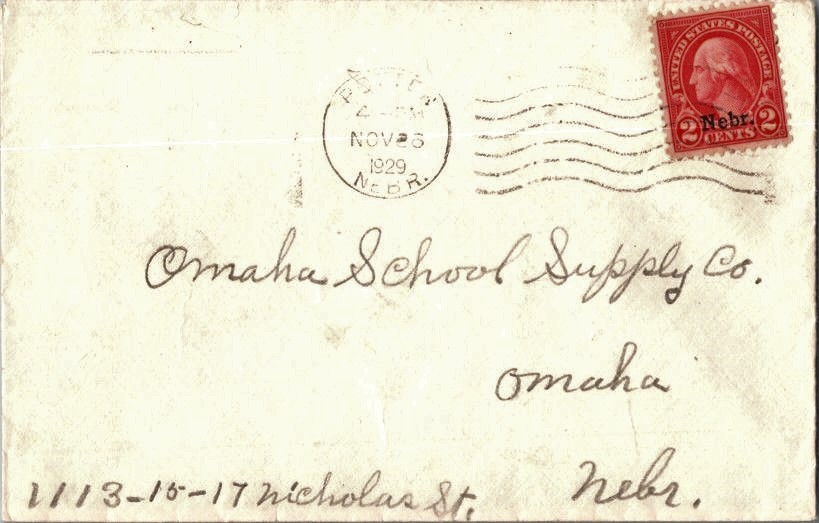 POTTER
4 - PM
NOV 26
1929
NEBR.
UNITED STATES POSTAGE
Nebr.
2 CENTS 2
Omaha School Supply Co.
Omaha
1113-15-17 Nicholas St. Nebr.